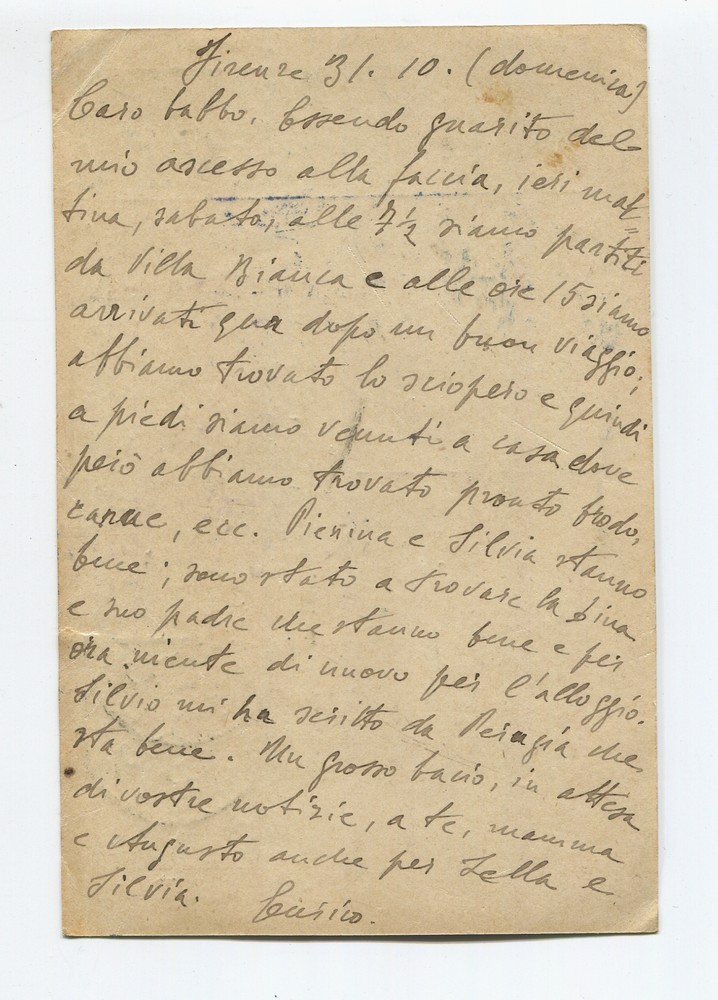 Firenze 31. 10. (domenica)
Caro babbo. Essendo guarito del
mio ascesso alla faccia, ieri mat=
tina, sabato, alle 7½ siamo partiti
da Villa Bianca e alle ore 15 siamo
arrivati qua dopo un buon viaggio;
abbiamo trovato lo sciopero e quindi
a piedi siamo venuti a casa dove
però abbiamo trovato pronto brodo,
carne, ecc. Pierina e Silvia stanno
bene; sono stato a trovare la Bina
e suo padre che stanno bene e per
ora niente di nuovo per l'alloggio.
Silvio mi ha scritto da Perugia che
sta bene. Un grosso bacio, in attesa
di vostre notizie, a te, mamma
e Augusto anche per Lella e
Silvia. Enrico.